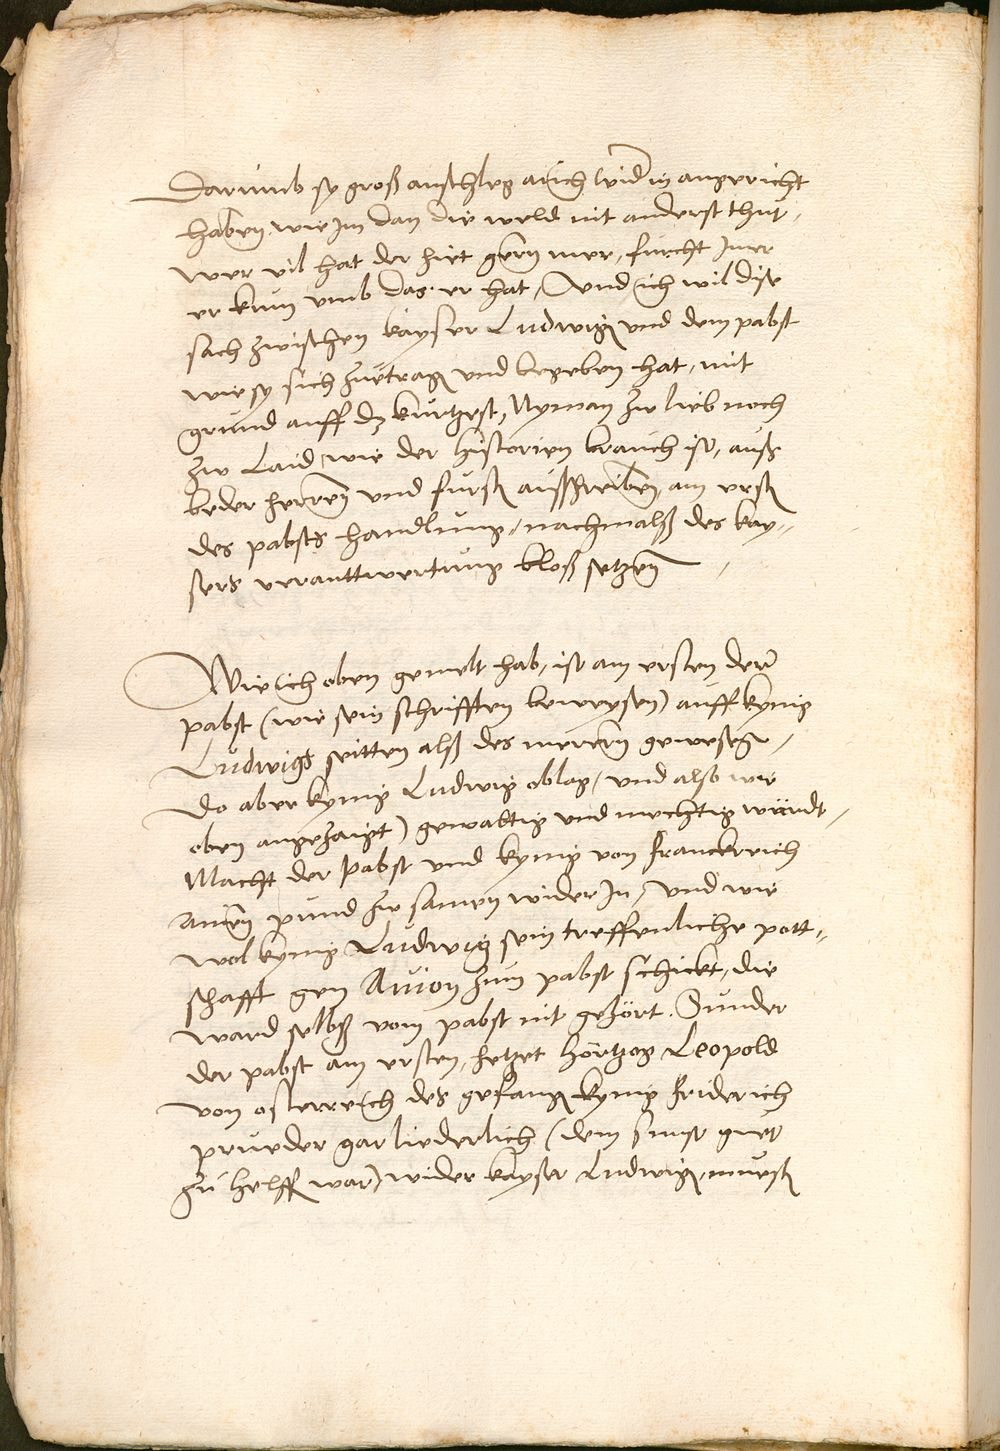 Darumb sy groß anschleg auch wider in angericht
haben, wie im dan die weld nit anderst thut,
wer vil hat der hiet gern mer, furcht imer
er kum umb das er hat, Und ich wil dise
sach zwischen kayser Ludwigen und dem pabst
wie sy sich zuetragen und begeben hat, mit
grund auff dz kurtzest, Nyman zw lieb noch
zw Laid, wie der historien brauch ist, auß
beder herren und fursten außschreiben, am ersten
des pabsts handlung, nachmalß des kay-
sers verantwertung bloß setzen

Wie ich oben gemelt hab, ist am ersten der
pabst (wie sein schrifften beweysen) auff kynig
Ludwigs seitten alß des merern gewesen,
Do aber kynig Ludwig oblag, und also wie
oben angezaigt) gewaltig und mechtig wurdt,
Macht der Pabst und kynig von Franckreich
ainen pund zw samen wider in, und wie
wol kynig Ludwig sein treffenliche pott-
schafft gen Avion zum pabst schickt, die
ward selbß vom pabst nit gehört. Sunder
der pabst am ersten, hetzet hörtzog Leopold
von osterreich des gefangen kynig Friderich
prueder gar liederlich (dem sunst guet
zu helffen war) wider kayser Ludwigen, muesten